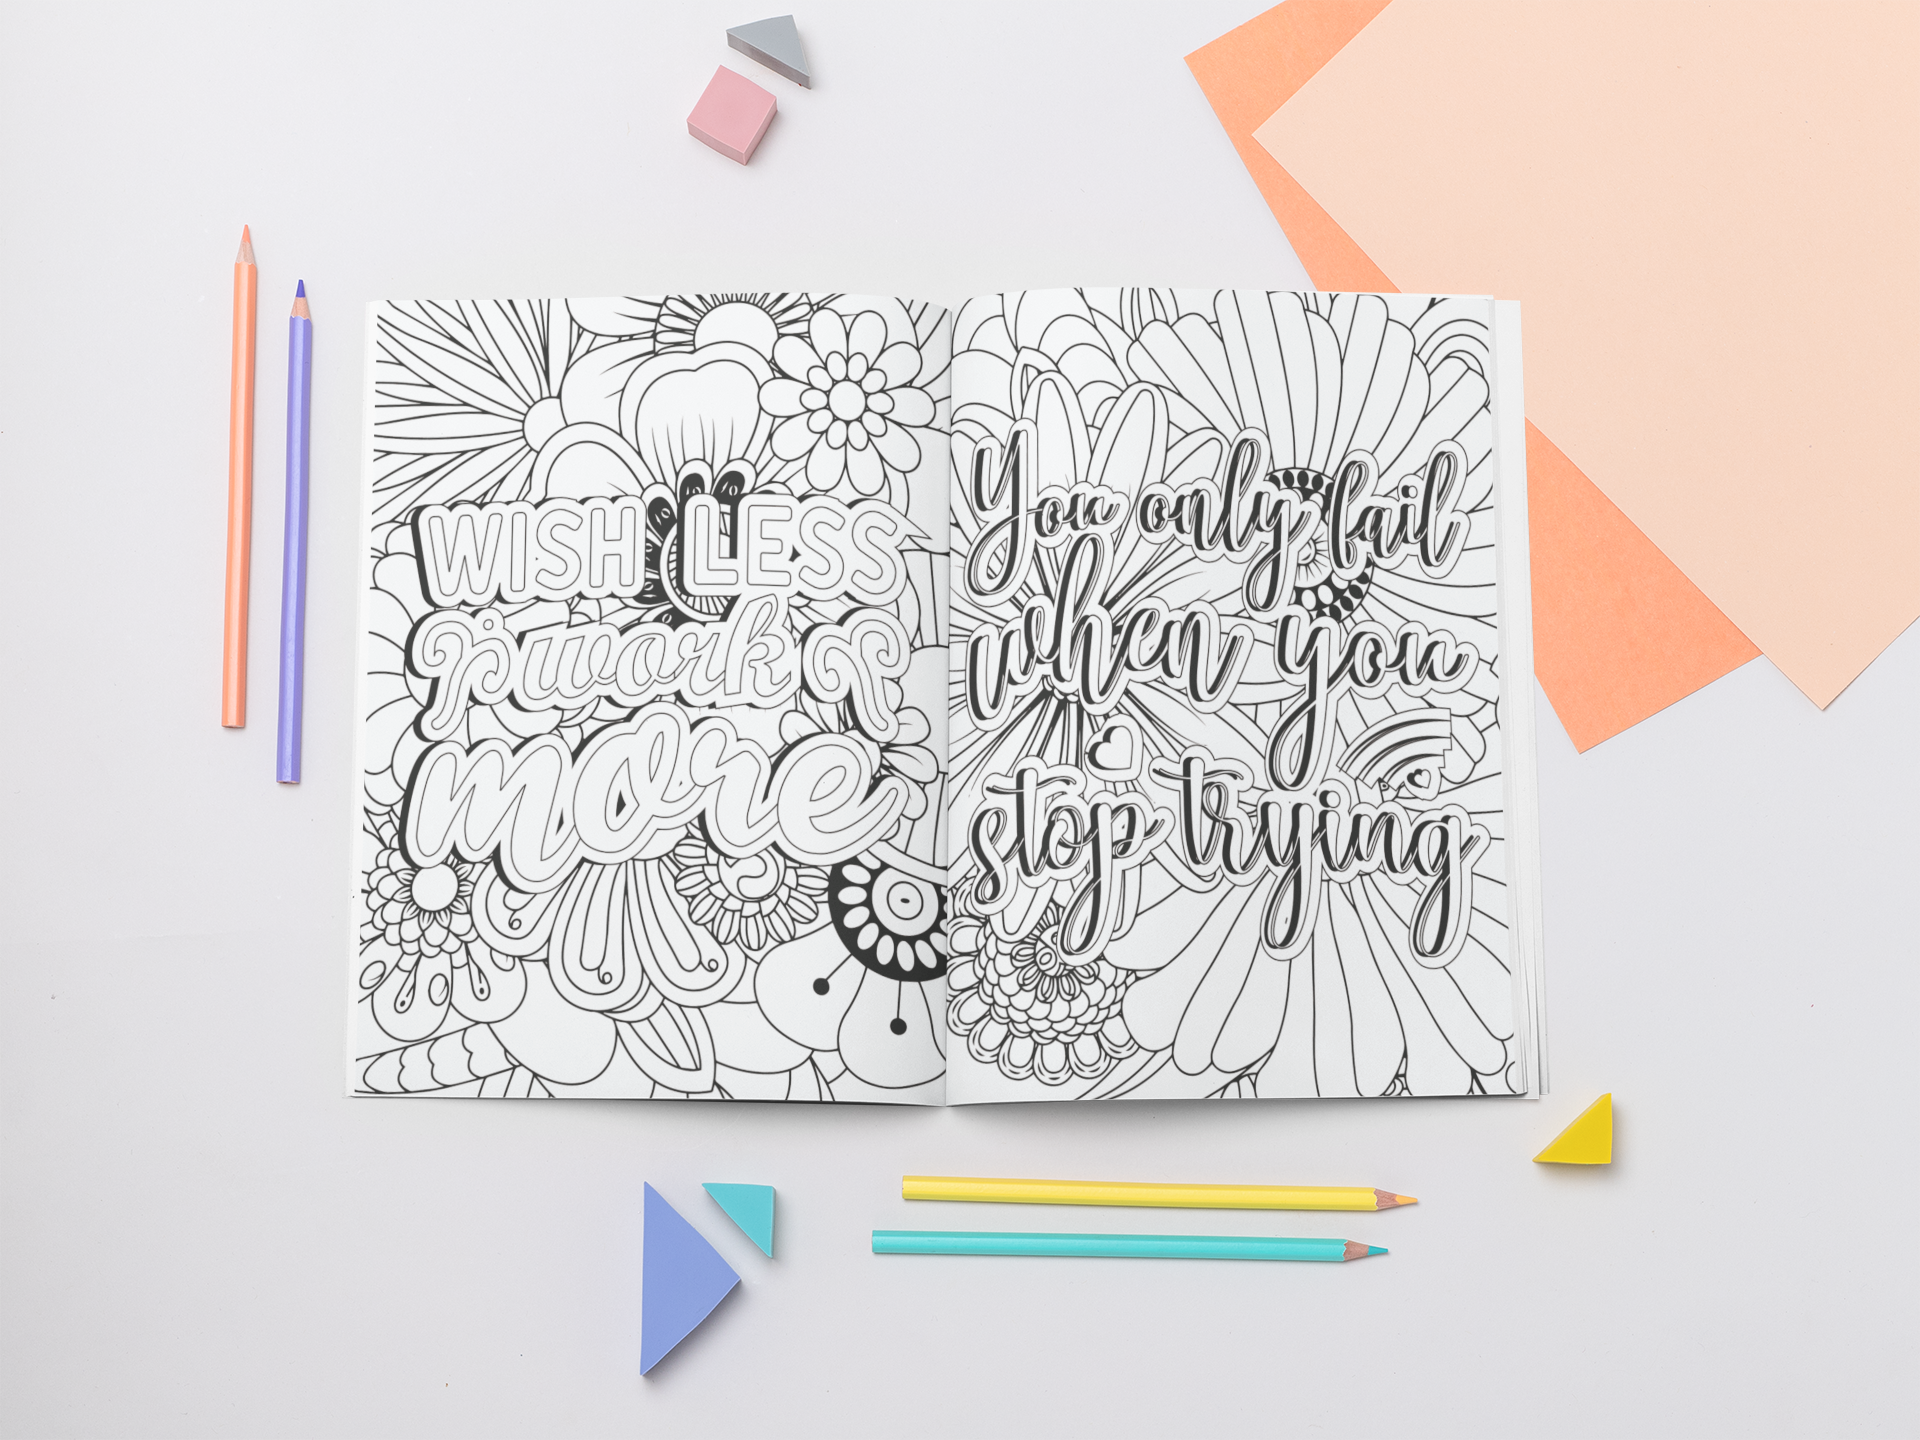 WISH LESS
work
more
You only fail
when you
stop trying